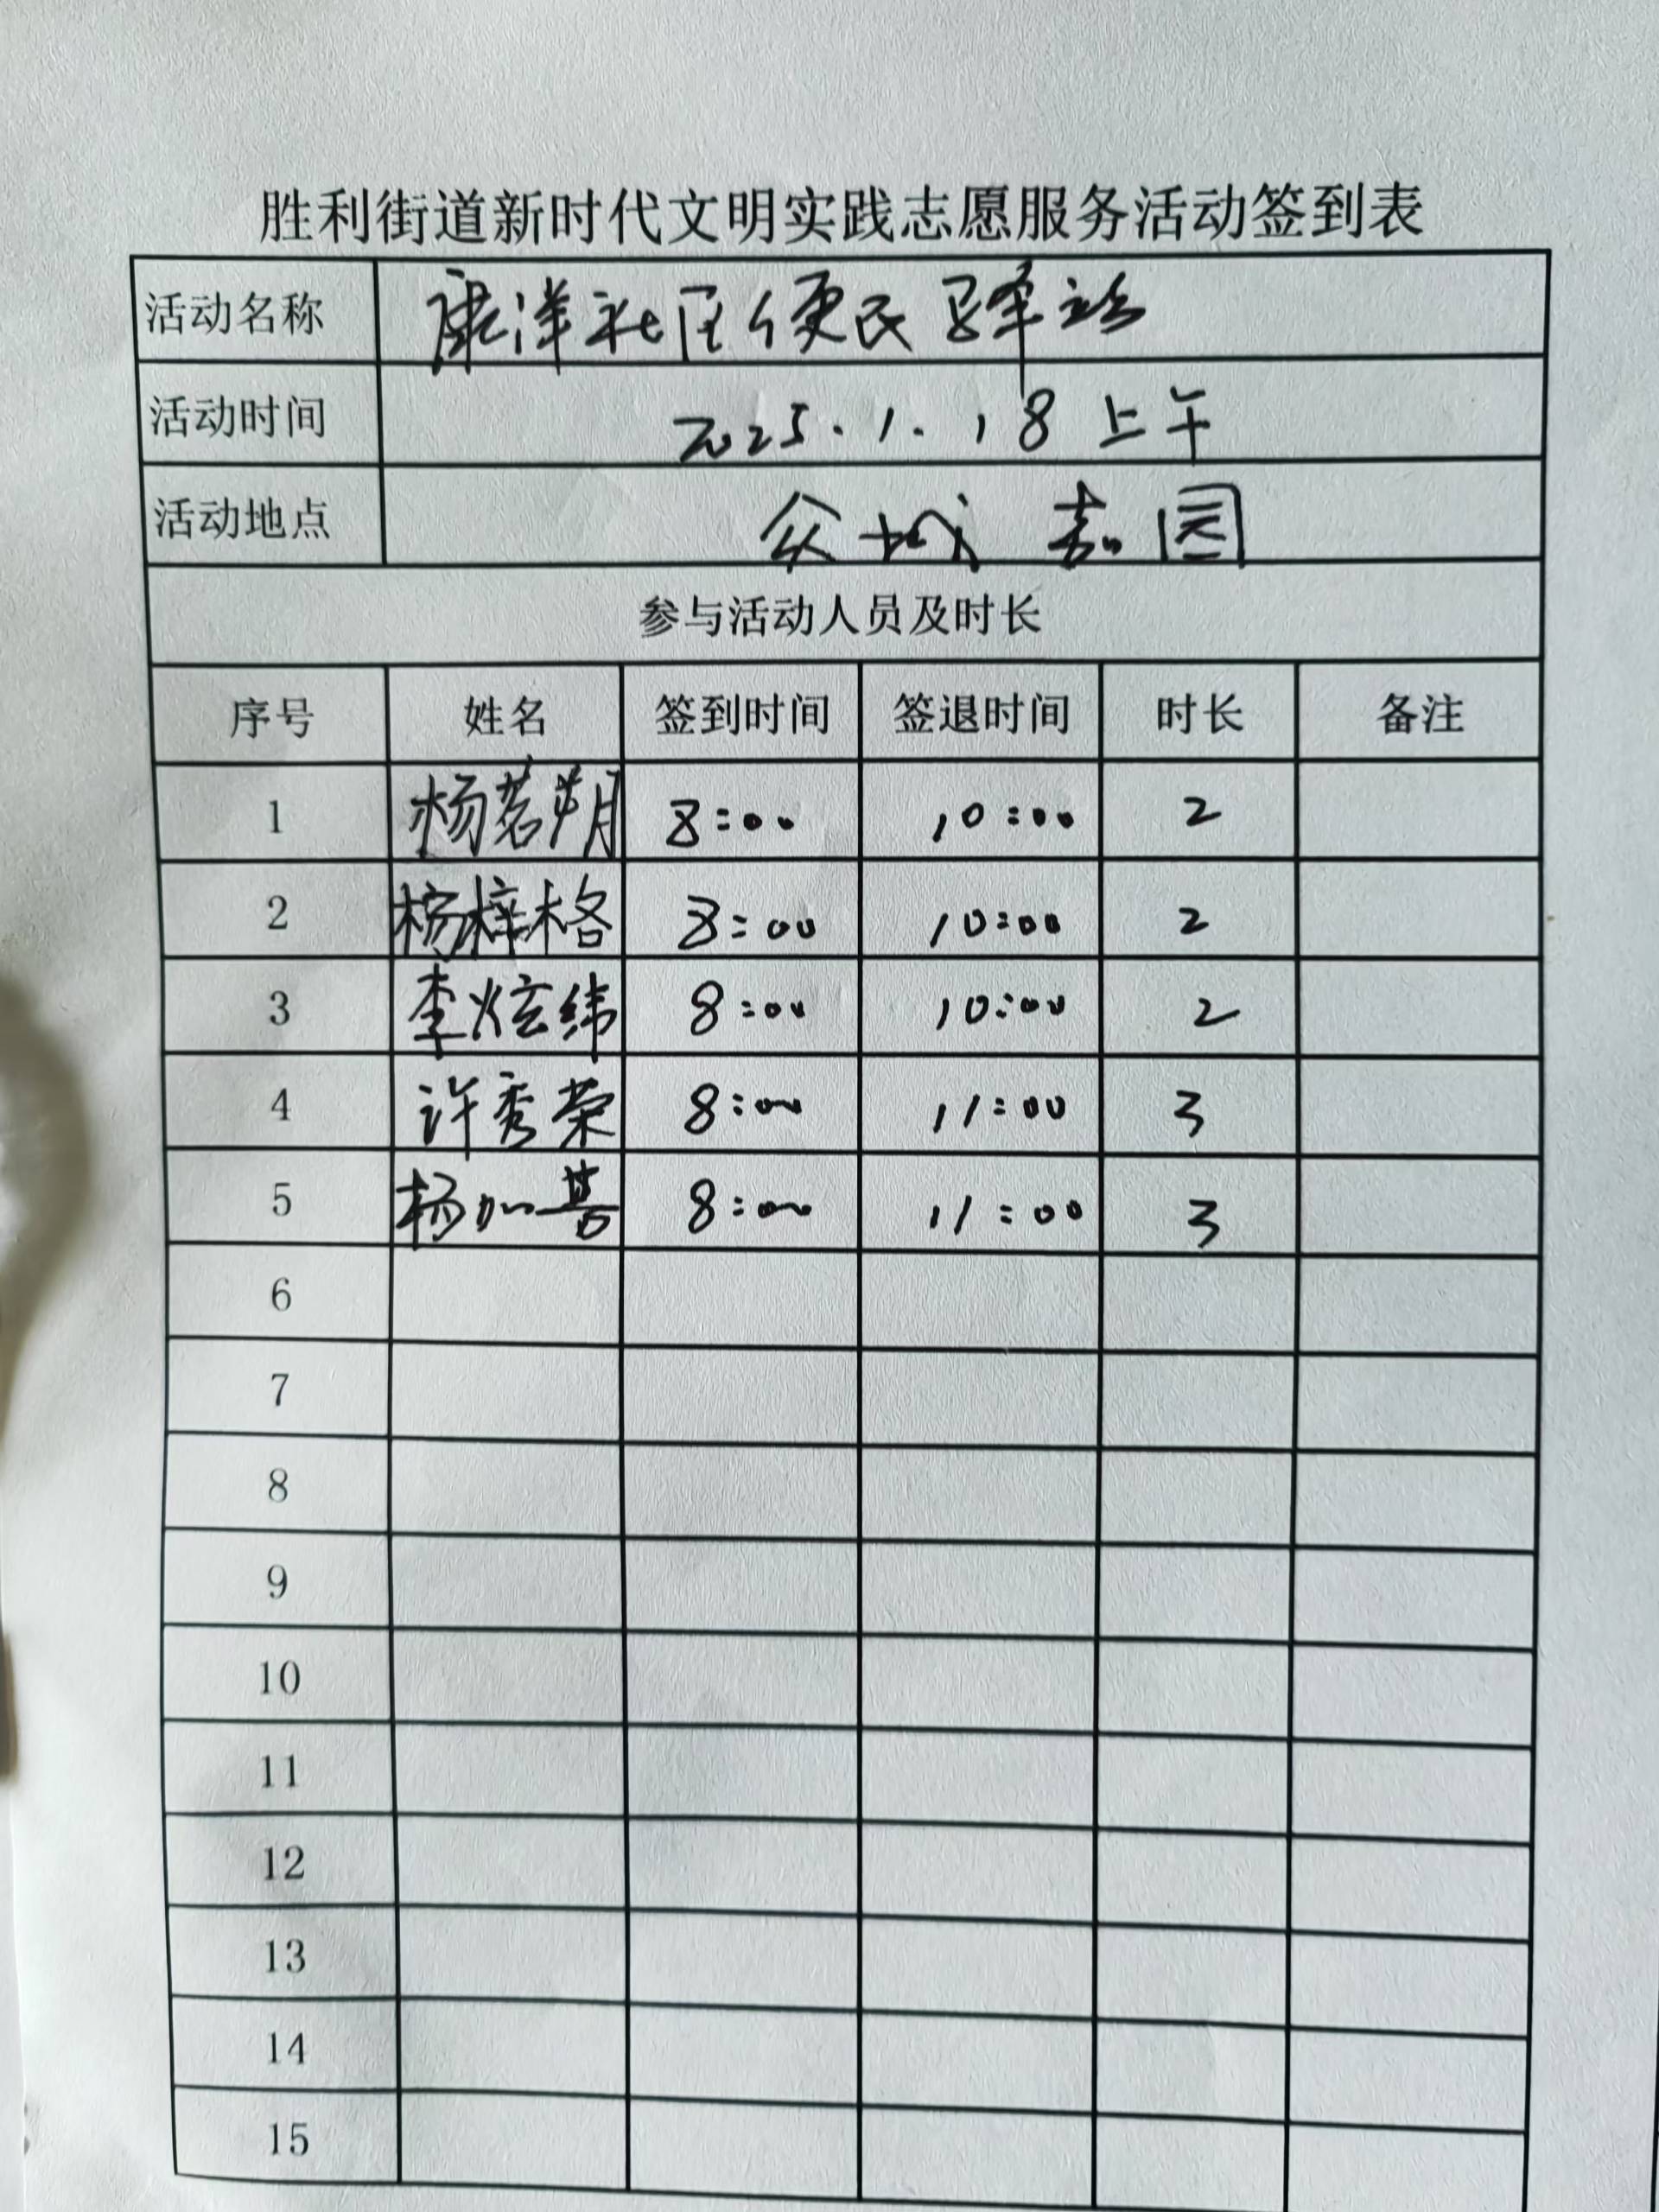 胜利街道新时代文明实践志愿服务活动签到表
活动名称 康洋社区便民驿站
活动时间 2025.1.18上午
活动地点 众城嘉园
参与活动人员及时长
序号 姓名 签到时间 签退时间 时长 备注
1 杨茗朔 8:00 10:00 2
2 杨梓格 8:00 10:00 2
3 李炫纬 8:00 10:00 2
4 许秀荣 8:00 11:00 3
5 杨加善 8:00 11:00 3
6
7
8
9
10
11
12
13
14
15